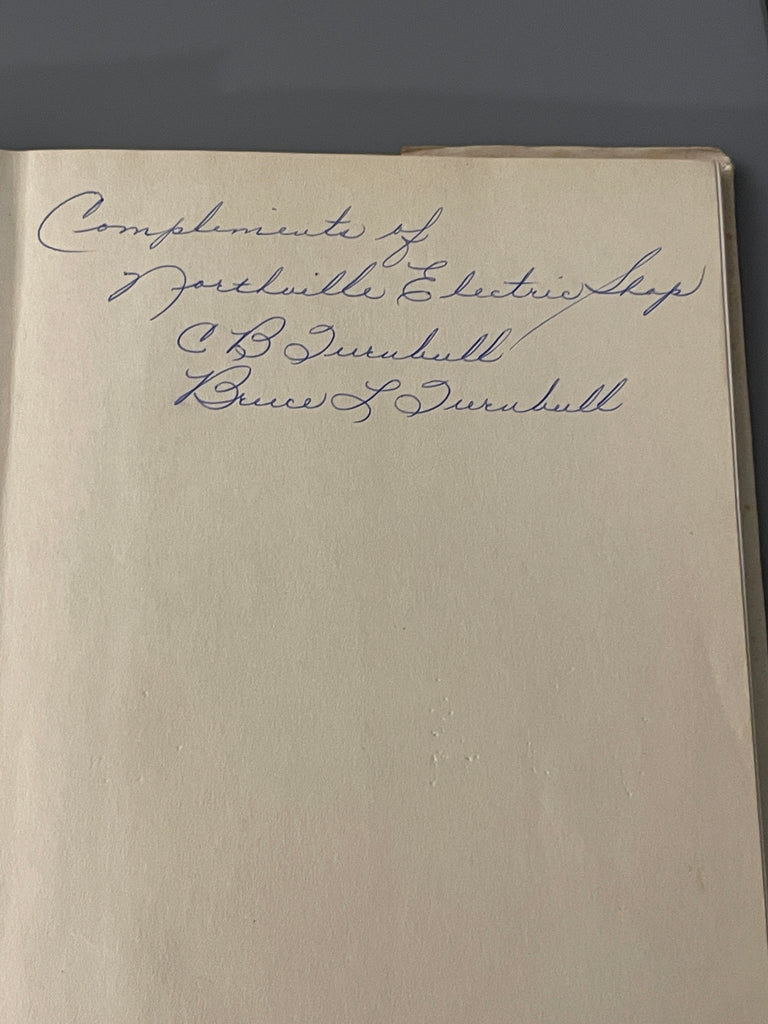 Compliments of
Northville Electric Shop
C B Turnbull
Bruce L Turnbull